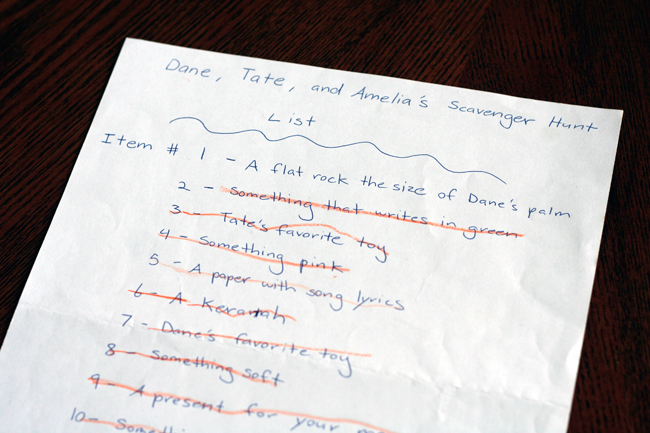 Dane, Tate, and Amelia's Scavenger Hunt
List
Item # 1 - A flat rock the size of Dane's palm
2 - Something that writes in green
3 - Tate's favorite toy
4 - Something pink
5 - A paper with song lyrics
6 - A Kexatah
7 - Dane's favorite toy
8 - Something soft
9 - A present for your
10 -